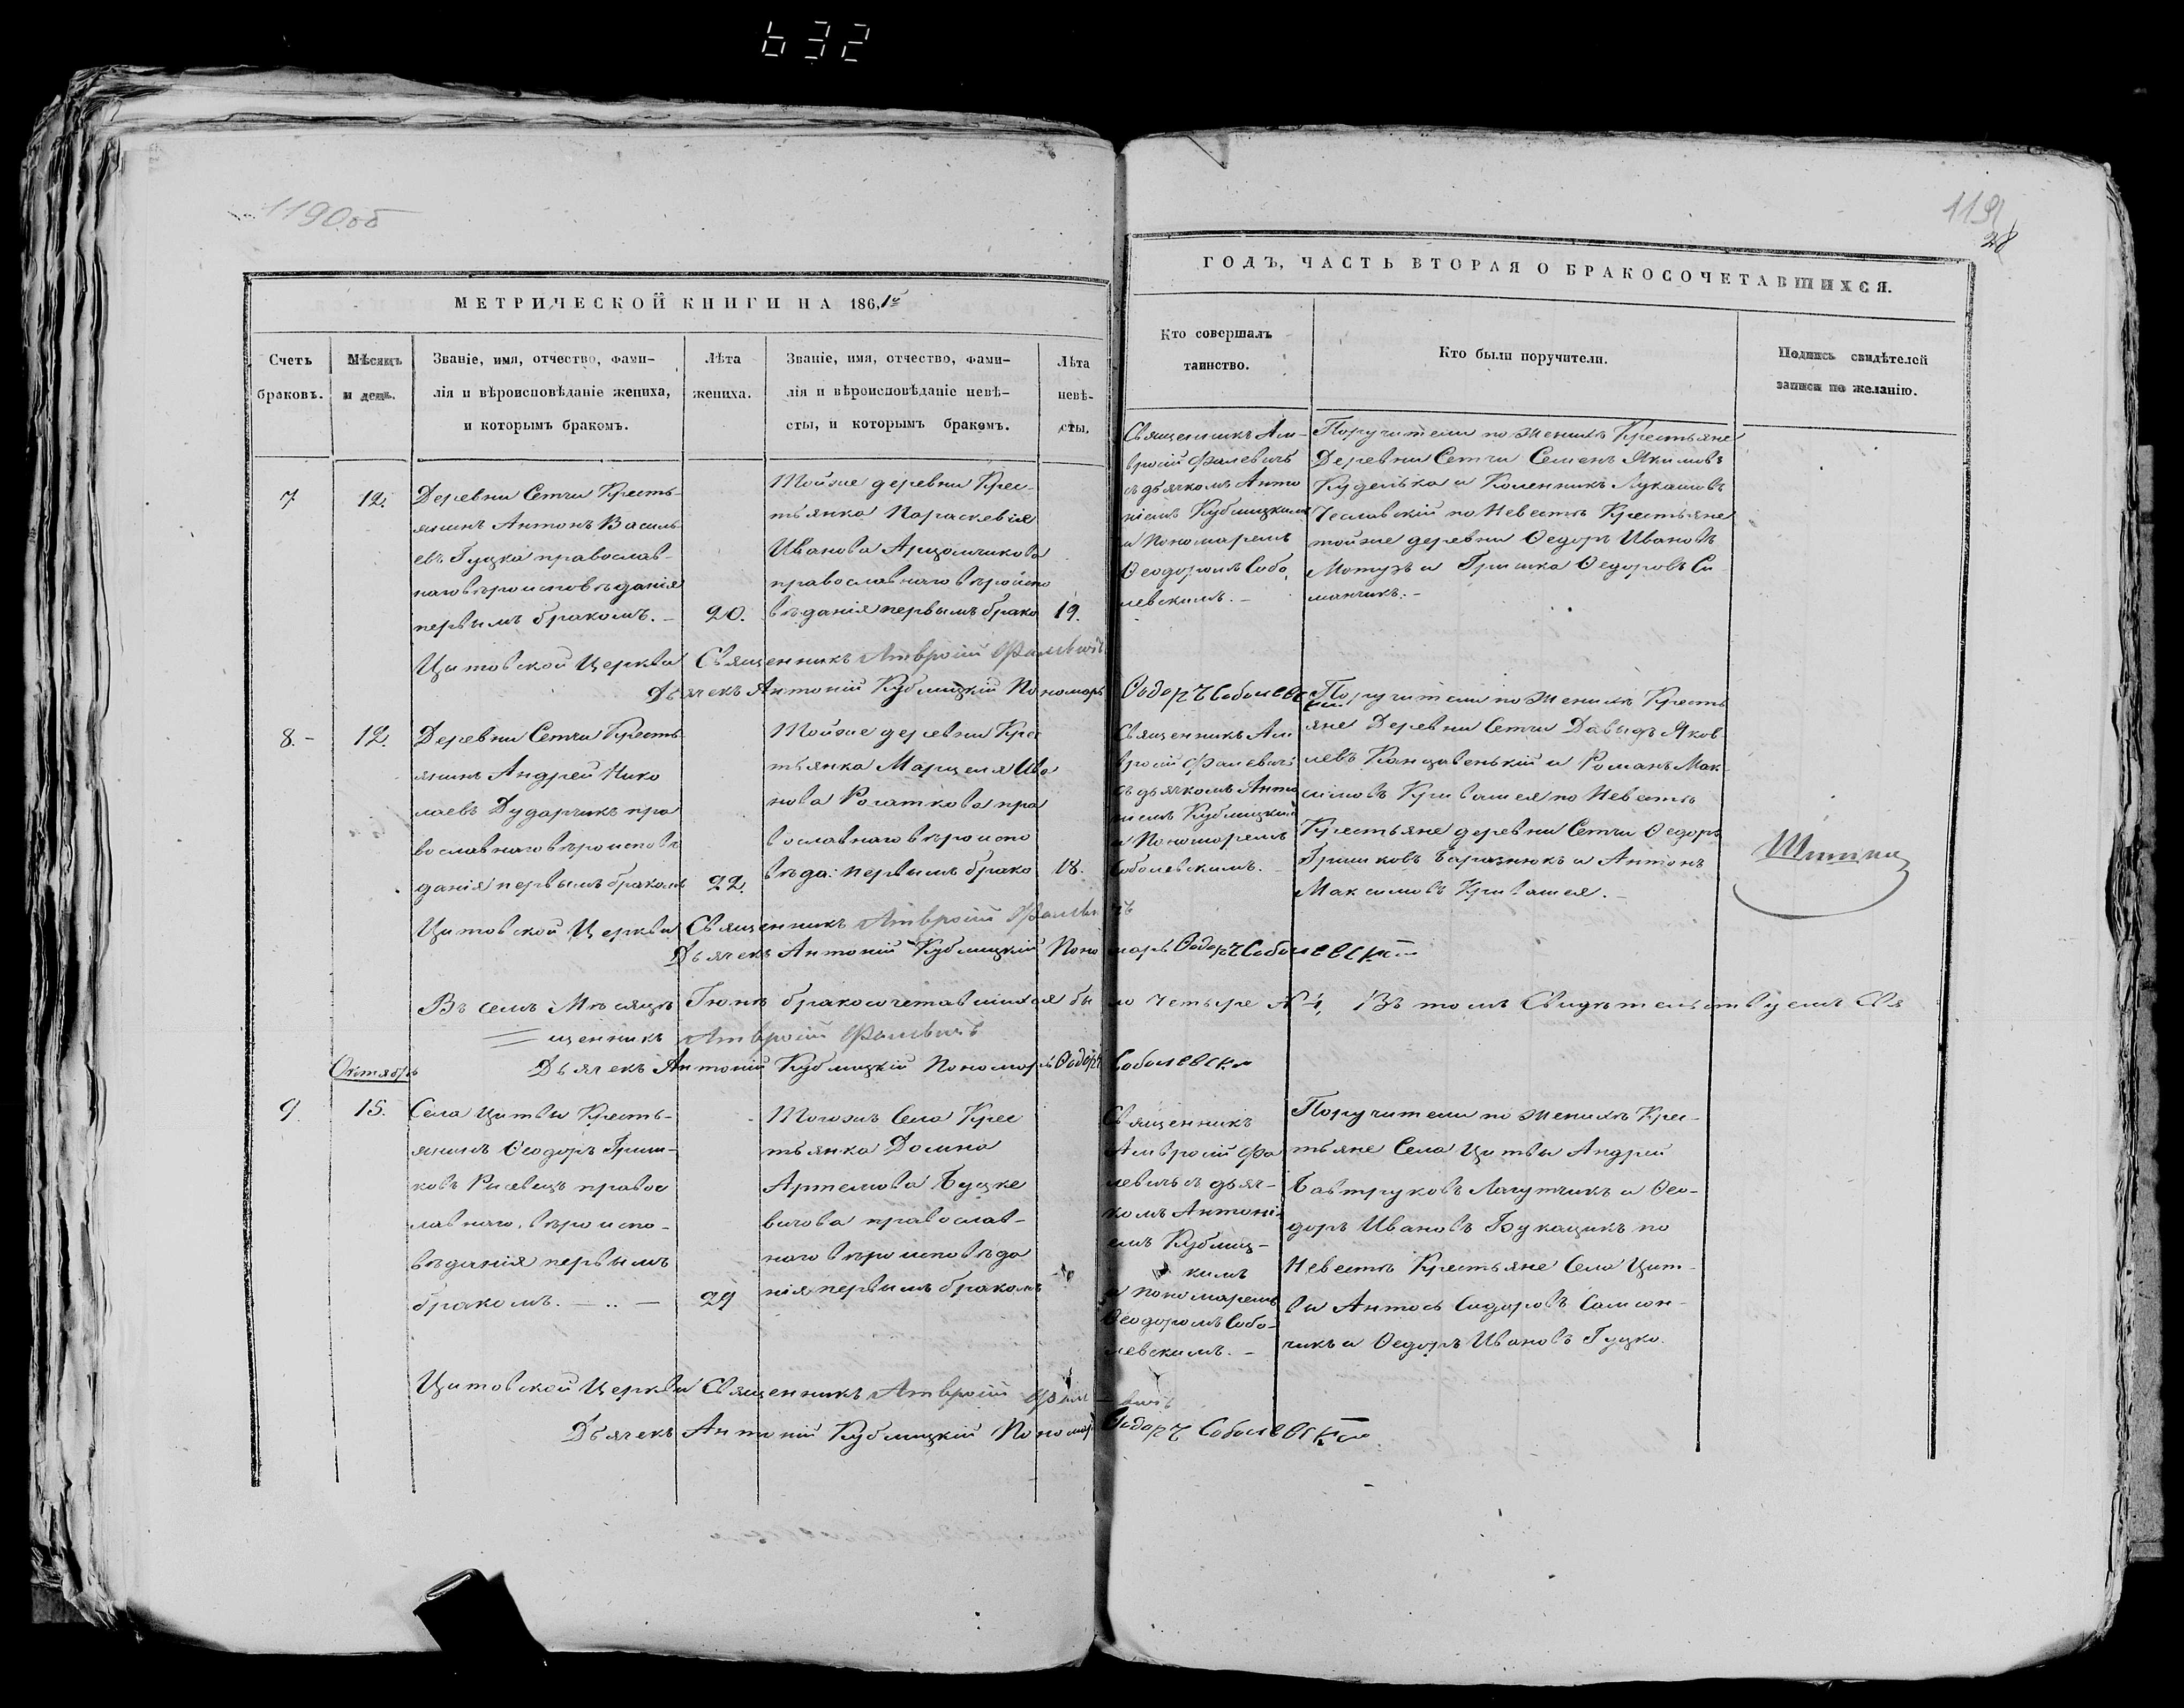 632
1190об
1191
28
МЕТРИЧЕСКОЙ КНИГИ НА 1861й
ГОДЪ, ЧАСТЬ ВТОРАЯ О БРАКОСОЧЕТАВШИХСЯ.
Счетъ
браковъ.
Мѣсяцъ
и день.
Званіе, имя, отчество, фами-
лія и вѣроисповѣданіе жениха,
и которымъ бракомъ.
Лѣта
жениха.
Званіе, имя, отчество, фами-
лія и вѣроисповѣданіе невѣ-
сты, и которымъ бракомъ.
Лѣта
невѣ-
сты.
Кто совершалъ
таинство.
Кто были поручители.
Подпись свидѣтелей
записи по желанію.
7
12.
Деревни Сетчи Кресть-
янинъ Антонъ Василь
евъ Гуцка православ-
наго вѣроисповѣданія
первымъ бракомъ. –
20.
Тойже деревни Крес-
тьянка Параскевія
Иванова Арцомчикова
православнаго вѣроиспо
вѣданія первымъ брако
19.
Священникъ Ам-
вросій Фалевичъ
съ дьячкомъ Анто
ніемъ Кублицкимъ
и Пономаремъ
Ѳеодоромъ Собо
левскимъ. –
Поручители по Женихѣ Крестьяне
Деревни Сетчи Семенъ Якимовъ
Куделька и Коленникъ Лукашовъ
Чеславскій по Невестѣ Крестьяне
тойже деревни Ѳедоръ Ивановъ
Мотузъ и Гришка Ѳедоровъ Си
манчикъ. –
Цитовской Церкви Священникъ Амвросій Фалевичъ
Дьячекъ Антоній Кублицкій Пономарь Ѳадоръ Соболевскій
8. –
12.
Деревни Сетчи Кресть
янинъ Андрей Нико
лаевъ Дударчикъ пра
вославнаго вѣроисповѣ
данія первымъ бракомъ
22.
Тойже деревни Крес
тьянка Марцеля Ива
нова Рогаткова пра
вославнаго вѣроиспо
вѣда: первымъ брако
18.
Священникъ Ам
вросій Фалевичъ
съ дьячкомъ Анто
ніемъ Кублицкимъ
и Пономоремъ
Соболевскимъ. –
Поручители по Женихѣ Кресть
яне Деревни Сетчи Давыдъ Яков
левъ Канцавенькій и Романъ Мак
симовъ Кривашея по Невестѣ
Крестьяне деревни Сетчи Ѳедоръ
Гришковъ Баразнюкъ и Антонъ
Максимовъ Кривашея. –
Цитовской Церкви Священникъ Амвросій Фалевичъ
Дьячекъ Антоній Кублицкій Пономарь Ѳадоръ Соболевскій
Въ семъ Мѣсяцѣ Іюнѣ бракосочетавшихся было Четыре № 4, Въ томъ Свидѣтельствуемъ Свя
щенникъ Амвросій Фалевичъ
Дьячекъ Антоній Кублицкій Пономарь Ѳадоръ Соболевскі
Октябрь
9.
15.
Села Цитвы Кресть-
янинъ Ѳеодоръ Гриш-
ковъ Рисевецъ правос
лавнаго вѣроиспо-
вѣданія первымъ
бракомъ. – .. –
29
Тогожъ Села Крес
тьянка Домна
Артемова Буцке
вичова православ-
наго вѣроисповѣда
нія первымъ бракомъ
Священникъ
Амвросій Фа
левичъ съ дьяч-
комъ Антоні
емъ Кублиц-
кимъ
и пономаремъ
Ѳеодоромъ Собо-
левскимъ. –
Поручители по Женихѣ Крес-
тьяне Села Цитвы Андрей
Бавтруковъ Лагутчикъ и Ѳео-
доръ Ивановъ Букащикъ по
Невестѣ Крестьяне Села Цит-
вы Антось Сидоровъ Самсон-
чикъ и Ѳедоръ Ивановъ Гуцко.
Цитовской Церкви Священникъ Амвросій Фалевичъ
Дьячекъ Антоній Кублицкій Пономарь Ѳадоръ Соболевскій